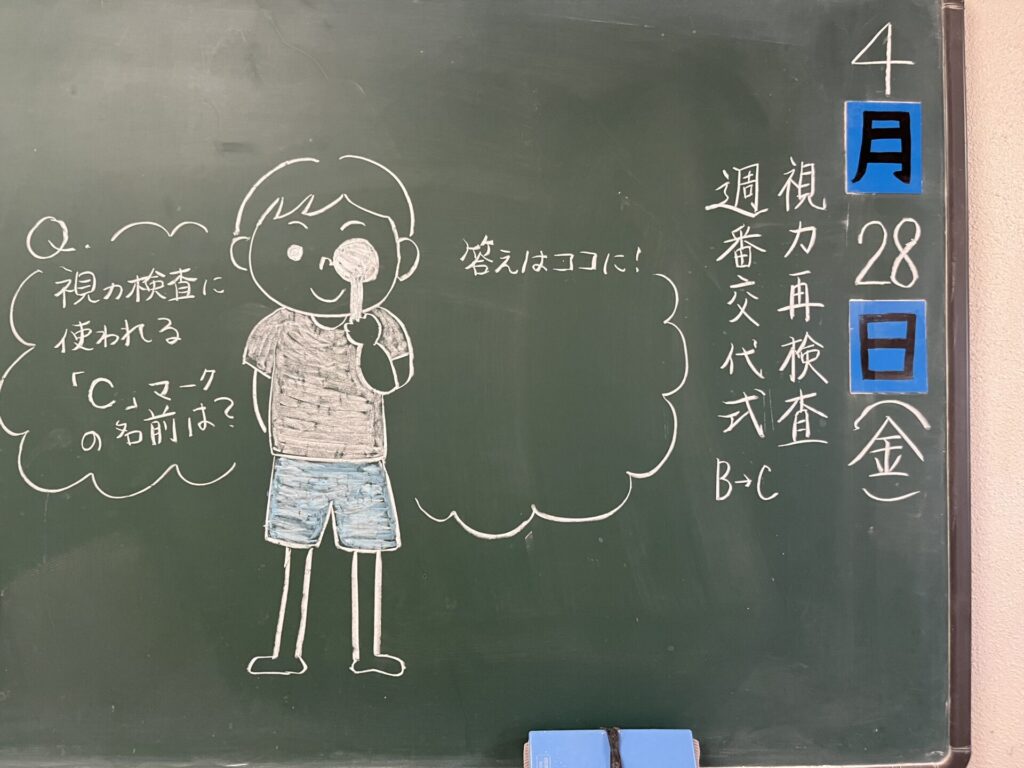 4月28日(金)
視力再検査
週番交代式
B→C
Q.
視力検査に
使われる
「C」マーク
の名前は?
答えはココに!